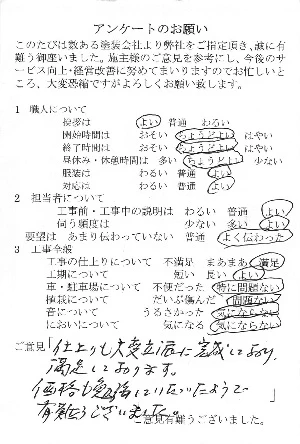 アンケートのお願い
このたびは数ある塗装会社より弊社をご指定頂き、誠に有
難う御座いました。施主様のご意見を参考にし、今後のサ
ービス向上・経営改善に努めてまいりますのでお忙しいと
ころ、大変恐縮ですがよろしくお願い致します。
1 職人について
挨拶は よい 普通 わるい
開始時間は おそい ちょうどよい はやい
終了時間は おそい ちょうどよい はやい
昼休み・休憩時間は 多い ちょうどよい 少ない
服装は わるい 普通 よい
対応は わるい 普通 よい
2 担当者について
工事前・工事中の説明は わるい 普通 よい
伺う頻度は 少ない 多い よい
要望は あまり伝わっていない 普通 よく伝わった
3 工事全般
工事の仕上りについて 不満足 まあまあ 満足
工期について 短い 長い よい
車・駐車場について 不便だった 特に問題ない
植栽について だいぶ傷んだ 問題ない
音について うるさかった 気にならない
においについて 気になる 気にならない
ご意見「仕上りも大変立派に完成しており、
満足しております。
価格も勉強していただいたようで
有難うございました。」
ご意見有難うございました。